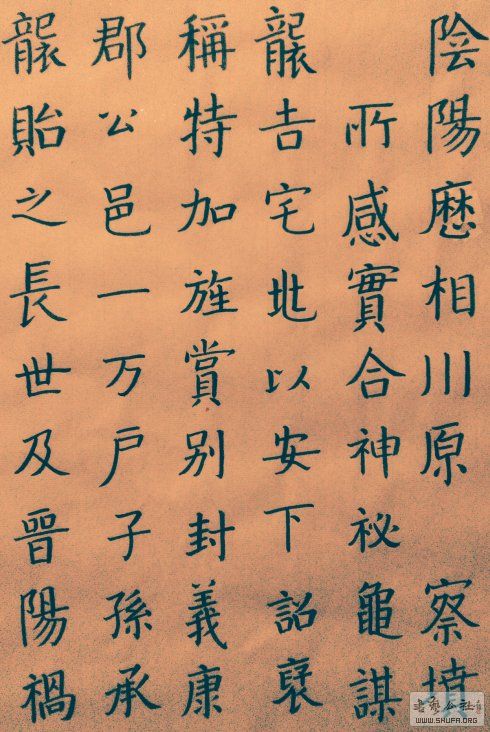 陰陽歷相川原察墳
所感實合神祕龜謀
襲吉宅兆以安下詔褒
稱特加旌賞别封義康
郡公邑一万戶子孫承
襲貽之長世及晉陽禍
書藝公社
WWW.SHUFA.ORG